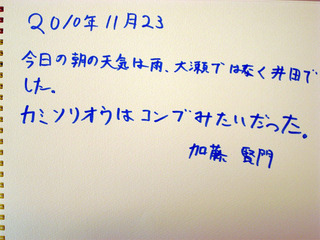 2010年11月23
今日の朝の天気は雨、大瀬ではなく井田で
した。
カミソリオウはコンブみたいだった。
加藤 賢門